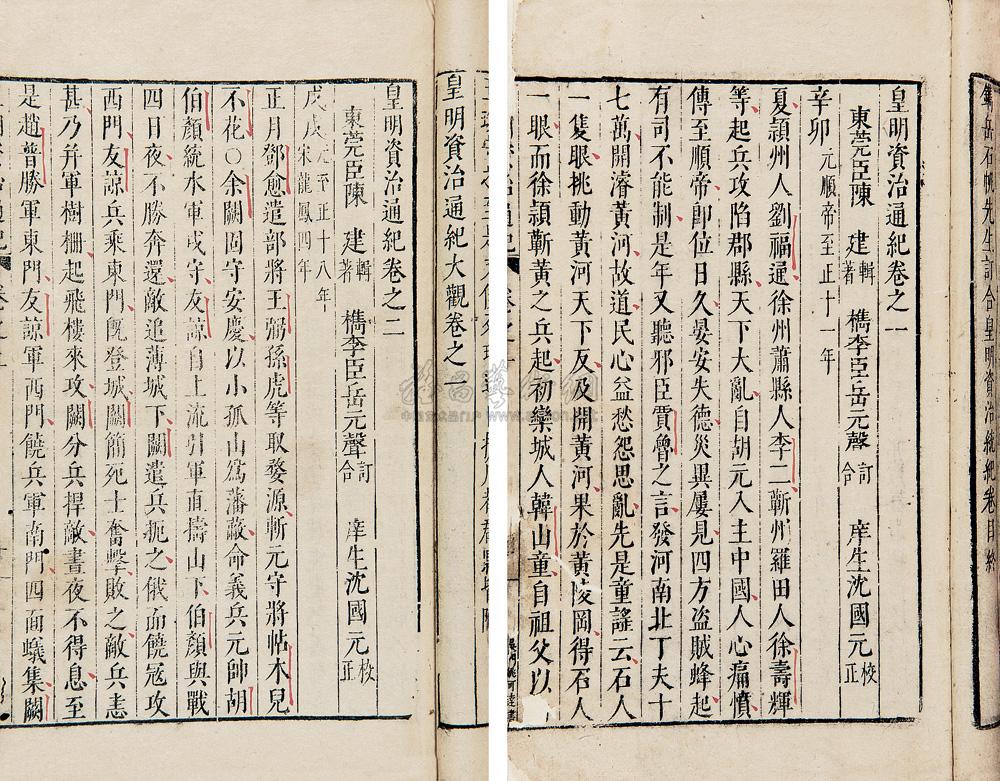 皇明資治通紀卷之一
東莞臣陳 建輯著 檇李臣岳元聲訂合 庠生沈國元校正
辛卯元順帝至正十一年
夏潁州人劉福通徐州蕭縣人李二蘄州羅田人徐壽輝
等起兵攻陷郡縣天下大亂自胡元入主中國人心痛憤
傳至順帝卽位日久晏安失德災異屢見四方盜賊蜂起
有司不能制是年又聽邪臣賈魯之言發河南北丁夫十
七萬開濬黃河故道民心益愁怨思亂先是童謠云石人
一隻眼挑動黃河天下反及開黃河果於黃陵岡得石人
一眼而徐潁蘄黃之兵起初欒城人韓山童自祖父以
皇明資治通紀大觀卷之一
皇明資治通紀卷之二
東莞臣陳 建輯著 檇李臣岳元聲訂合 庠生沈國元校正
戊戌元至正十八年宋龍鳳四年
正月鄧愈遣部將王弼孫虎等取婺源斬元守將帖木兒
不花○余闕固守安慶以小孤山爲藩蔽命義兵元帥胡
伯顏統水軍戍守友諒自上流引軍直擣山下伯顏與戰
四日夜不勝奔還敵追薄城下闕遣兵扼之俄而饒寇攻
西門友諒兵乘東門旣登城闕簡死士奮擊敗之敵兵恚
甚乃并軍樹柵起飛樓來攻闕分兵捍敵晝夜不得息至
是趙普勝軍東門友諒軍西門饒兵軍南門四面蟻集闕